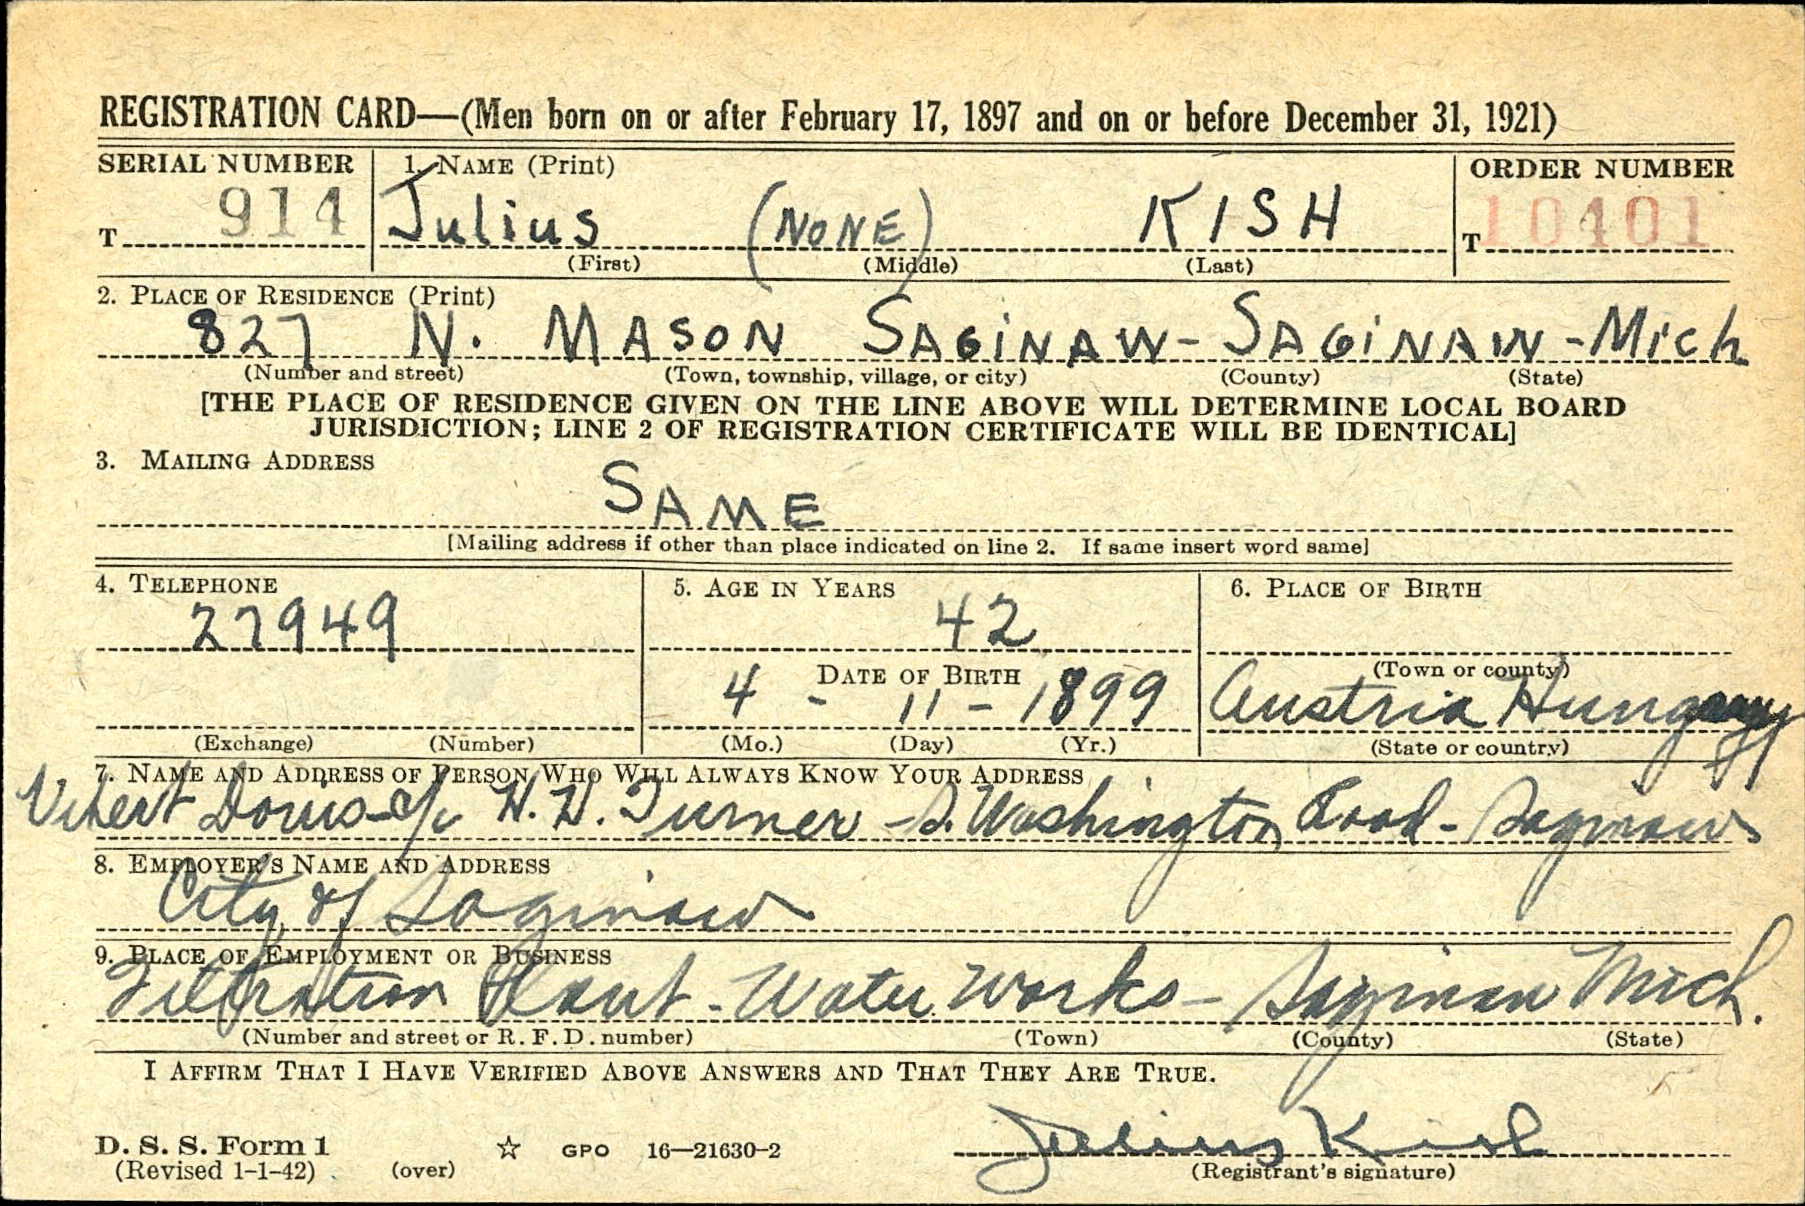 REGISTRATION CARD—(Men born on or after February 17, 1897 and on or before December 31, 1921)
SERIAL NUMBER
1. NAME (Print)
ORDER NUMBER
T 914
Julius (NONE) KISH
T 10401
(First) (Middle) (Last)
2. PLACE OF RESIDENCE (Print)
827 N. MASON SAGINAW - SAGINAW - Mich
(Number and street) (Town, township, village, or city) (County) (State)
[THE PLACE OF RESIDENCE GIVEN ON THE LINE ABOVE WILL DETERMINE LOCAL BOARD
JURISDICTION; LINE 2 OF REGISTRATION CERTIFICATE WILL BE IDENTICAL]
3. MAILING ADDRESS
SAME
[Mailing address if other than place indicated on line 2. If same insert word same]
4. TELEPHONE
27949
(Exchange) (Number)
5. AGE IN YEARS
42
DATE OF BIRTH
4 - 11 - 1899
(Mo.) (Day) (Yr.)
6. PLACE OF BIRTH
(Town or county)
Austria Hungary
(State or country)
7. NAME AND ADDRESS OF PERSON WHO WILL ALWAYS KNOW YOUR ADDRESS
c/o H. H. Turner - S. Washington Road - Saginaw
8. EMPLOYER'S NAME AND ADDRESS
City of Saginaw
9. PLACE OF EMPLOYMENT OR BUSINESS
Filtration Plant - Water Works - Saginaw Mich.
(Number and street or R. F. D. number) (Town) (County) (State)
I AFFIRM THAT I HAVE VERIFIED ABOVE ANSWERS AND THAT THEY ARE TRUE.
Julius Kish
D. S. S. Form 1
(Revised 1-1-42) (over) ☆ GPO 16—21630-2
(Registrant's signature)